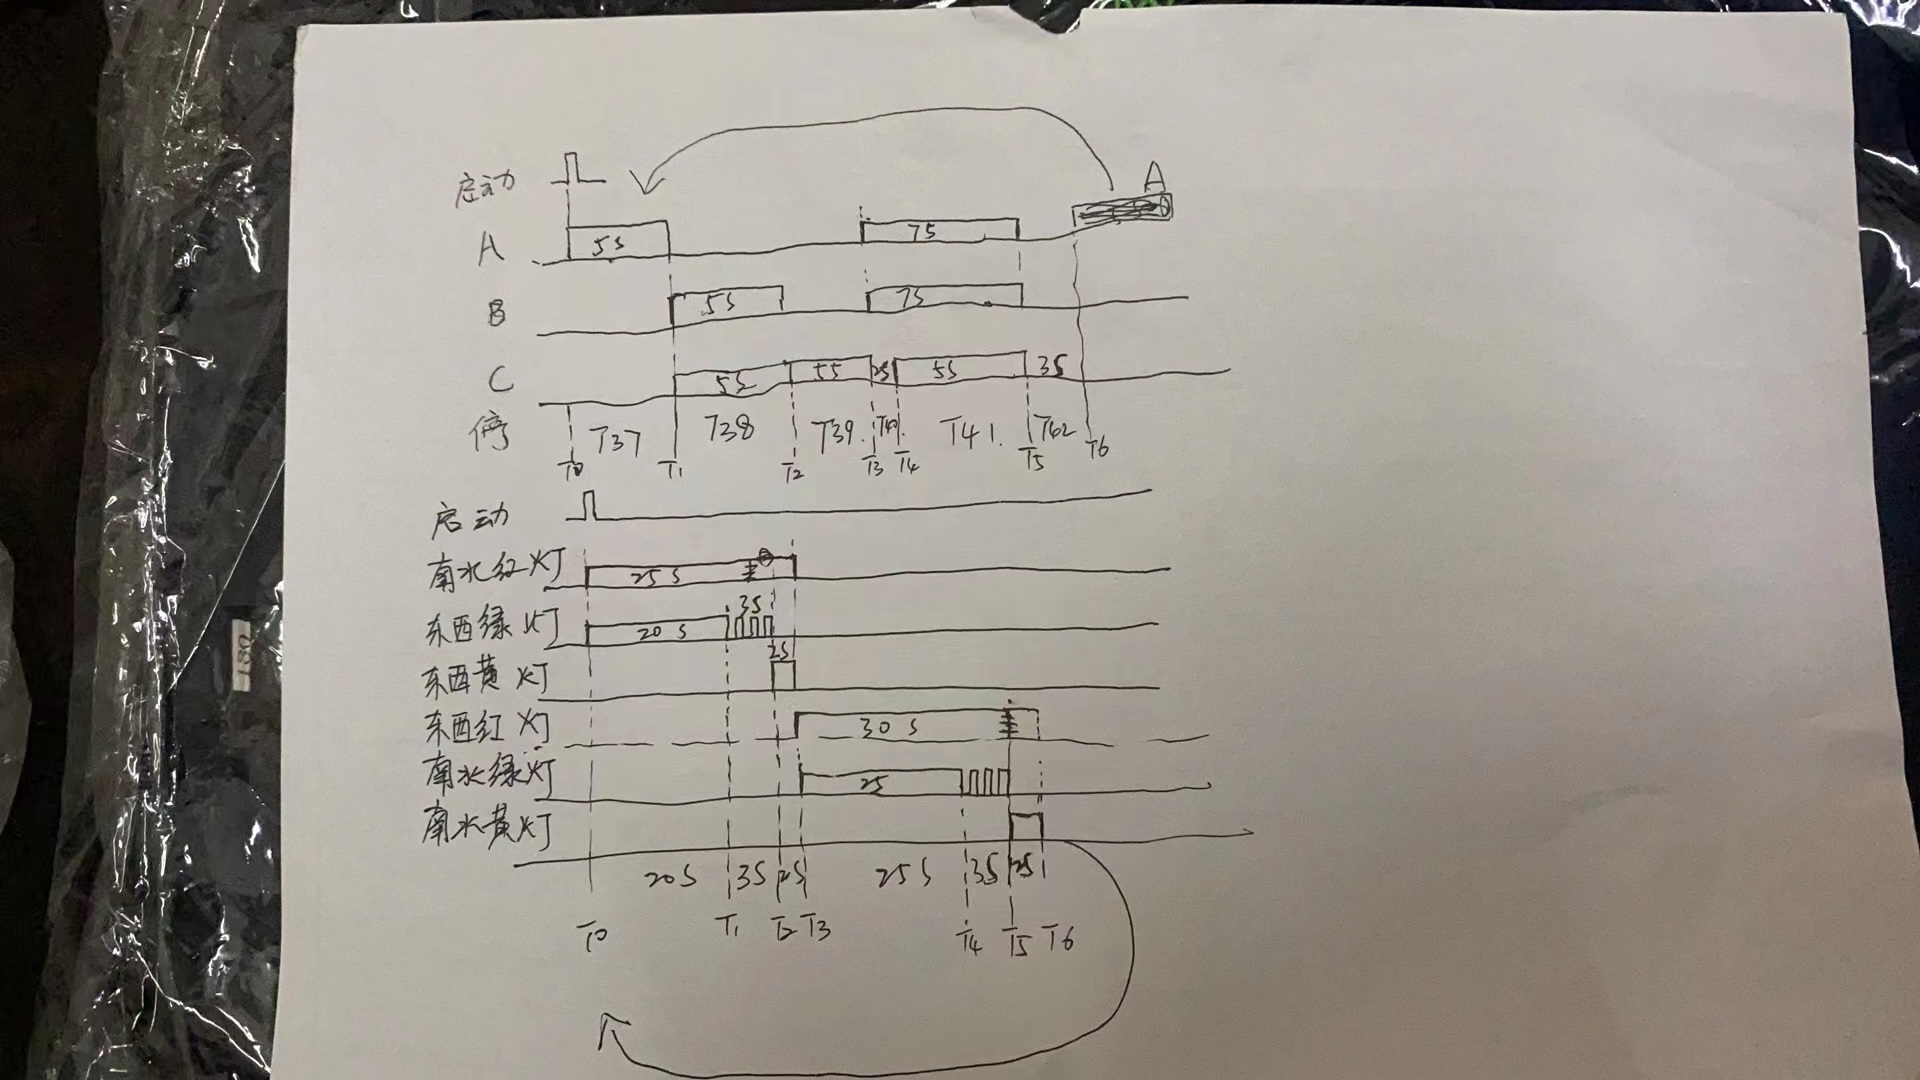 启动
A
A 5S 7S
B 5S 7S
C 5S 5S 2S 5S 3S
停 T37 T38 T39. T40. T41. T42
T0 T1 T2 T3 T4 T5 T6
启动
南北红灯 25S
3S
东西绿灯 20S
2S
东西黄灯
东西红灯 30S
南北绿灯 25
南北黄灯
20S 3S 2S 25S 3S 2S
T0 T1 T2 T3 T4 T5 T6
180